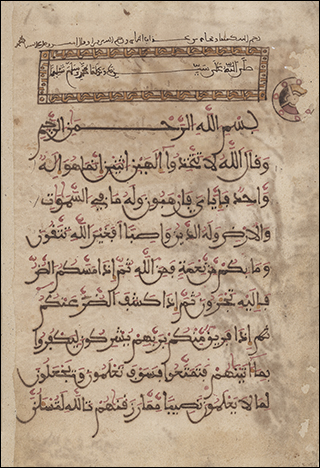 صلى الله على
بسم الله الرحمن الرحيم
وقال الله لا تتخذوا الهين اثنين انما هو اله
واحد فإياي فارهبون وله ما في السموات
والارض وله الدين واصبا افغير الله تتقون
وما بكم من نعمة فمن الله ثم اذا مسكم الضر
فإليه تجرون ثم اذا كشف الضر عنكم
اذا فريق منكم بربهم يشركون ليكفروا
بما اتينهم فتمتعوا فسوف تعلمون ويجعلون
لما لا يعلمون نصيبا مما رزقنهم تالله لتسئلن